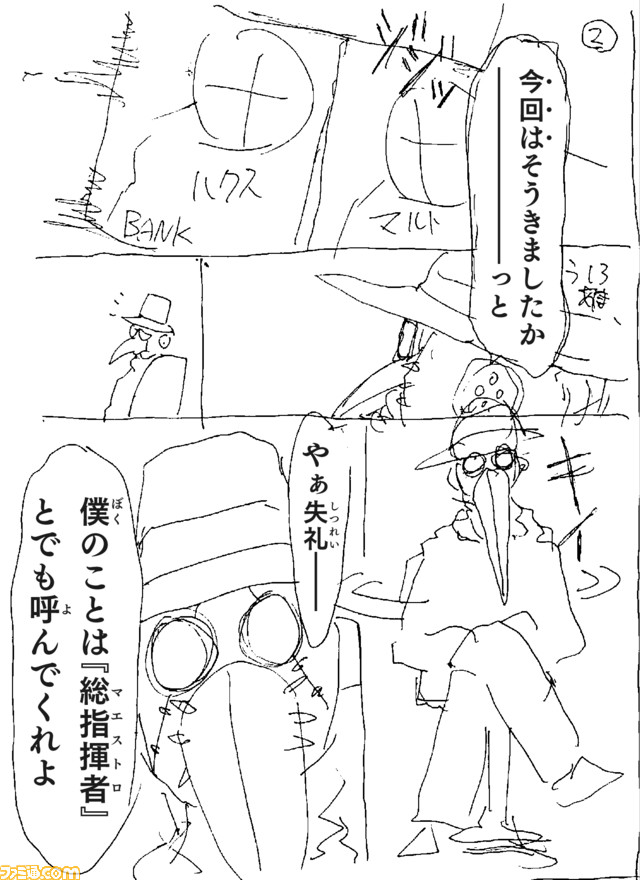 2
今回はそうきましたか
━━━━っと
ハクス
マルト
BANK
うしろ
やぁ失礼━━
しつれい
キィ
僕のことは『総指揮者』
ぼく
マエストロ
とでも呼んでくれよ
よ
ファミ通.com